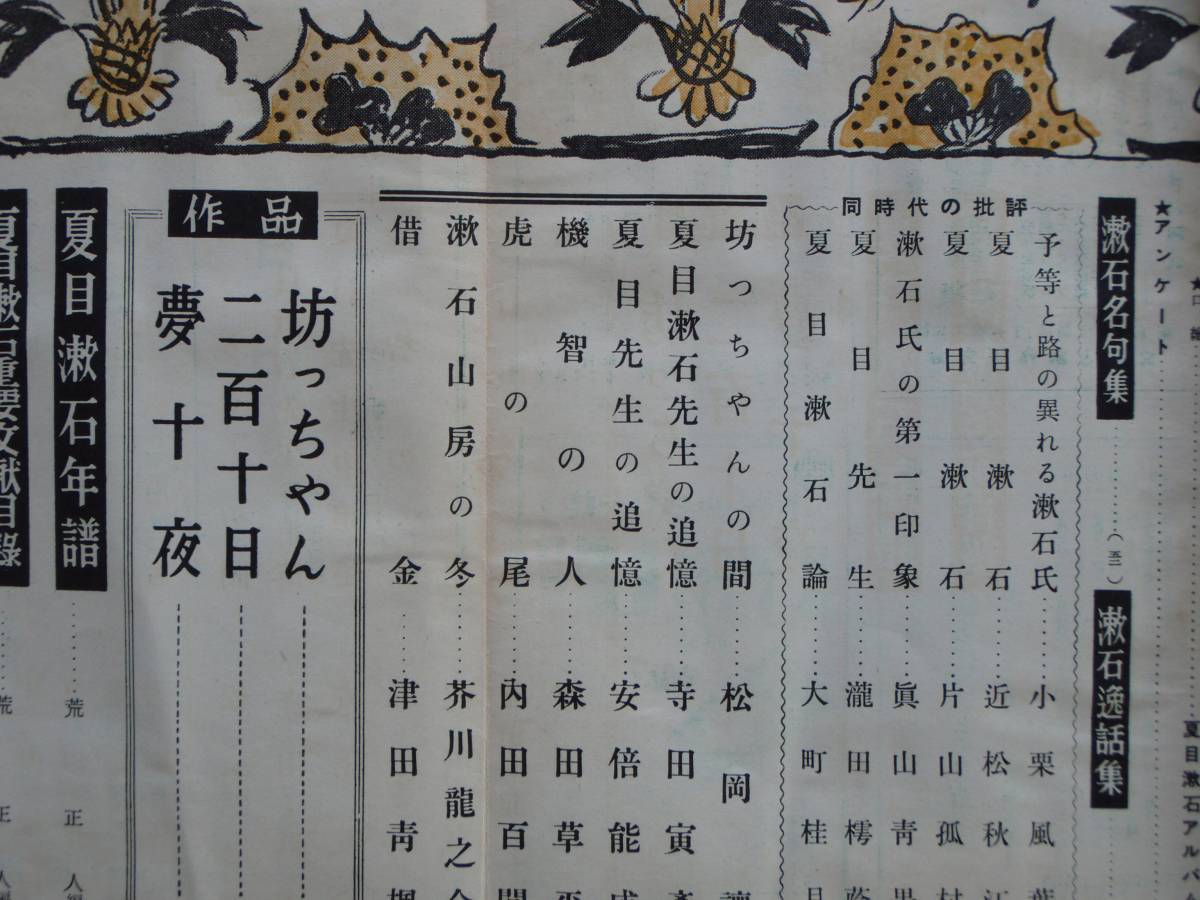 夏目漱石アルバ
★アンケート
漱石名句集 (五一)
漱石逸話集
同時代の批評
予等と路の異れる漱石氏 小栗風葉
夏目漱石 近松秋江
夏目漱石 片山孤村
漱石氏の第一印象 眞山靑果
夏目先生 瀧田樗蔭
夏目漱石論 大町桂月
坊っちやんの間 松岡譲
夏目漱石先生の追憶 寺田寅彥
夏目先生の追憶 安倍能成
機智の人 森田草平
虎の尾 内田百閒
漱石山房の冬 芥川龍之介
借金 津田靑楓
作品
坊っちやん
二百十日
夢十夜
夏目漱石年譜 荒正人編
夏目漱石重要文献目録 荒正人編